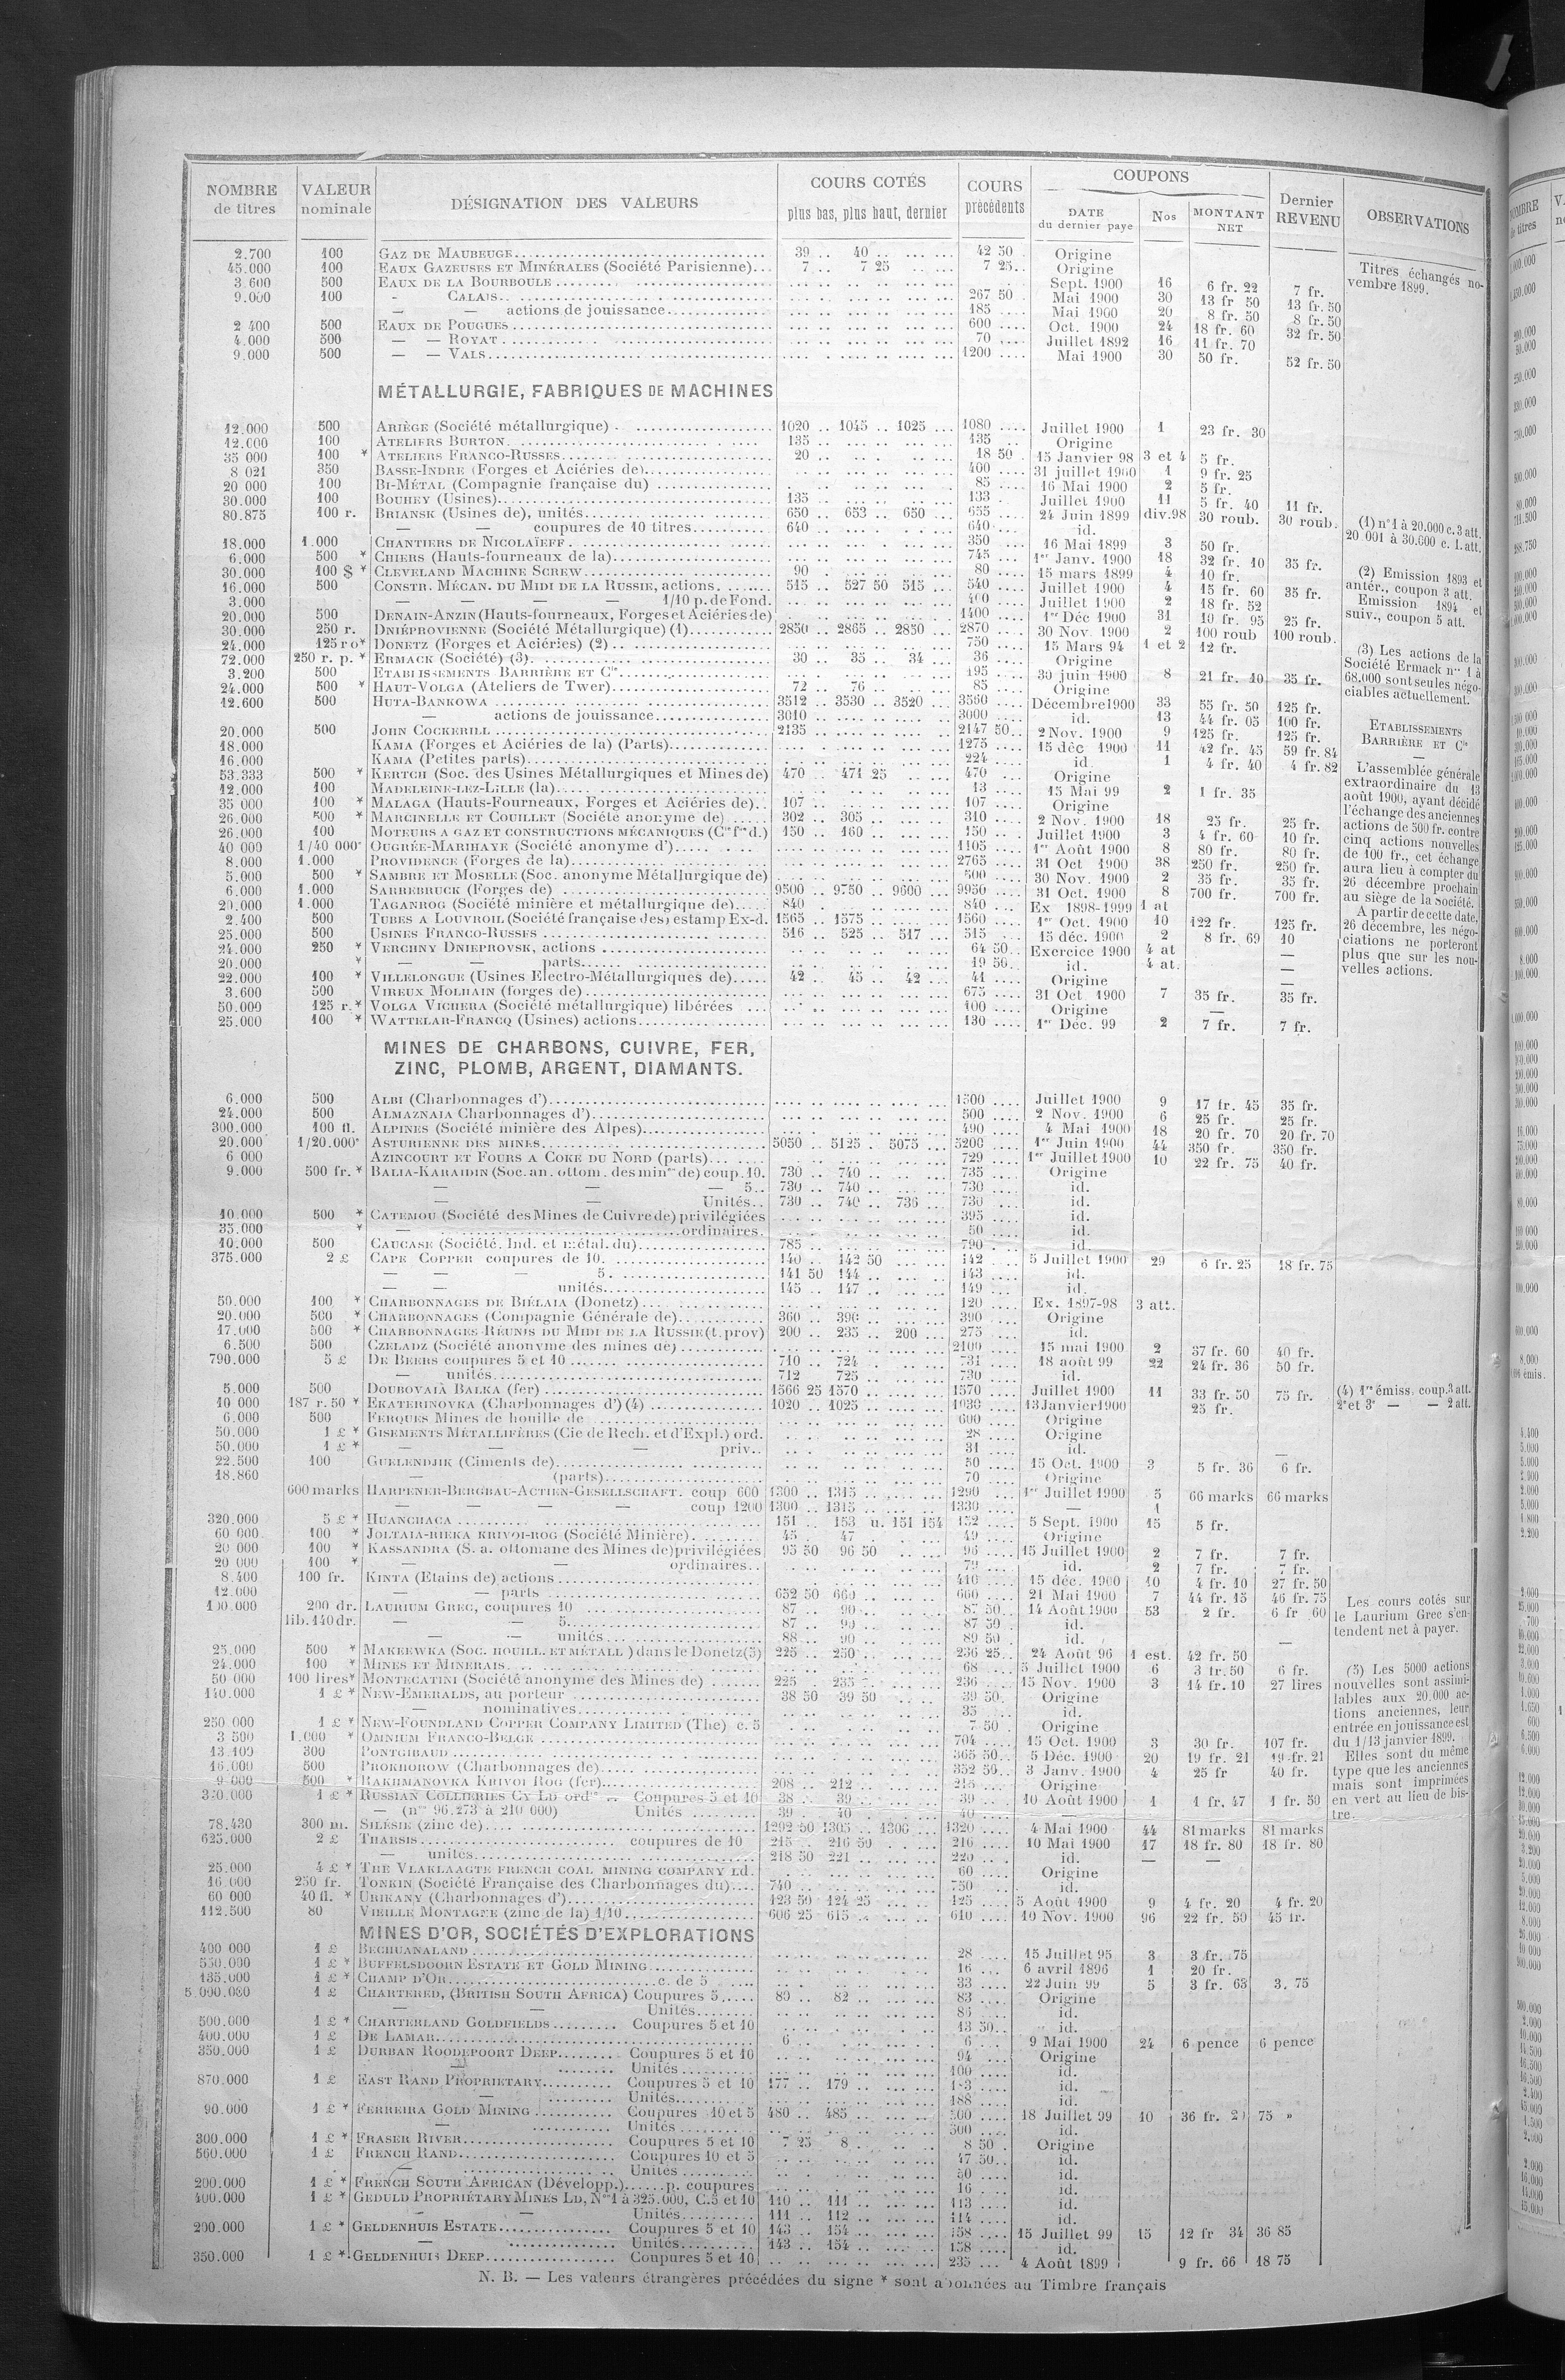 NOMBRE de titres | VALEUR nominale | DÉSIGNATION DES VALEURS | COURS COTÉS plus bas, plus haut, dernier | COURS précédents | COUPONS DATE du dernier paye | Nos | MONTANT NET | Dernier REVENU | OBSERVATIONS
2.700 100 GAZ DE MAUBEUGE 39 .. 40 .. 42 50 Origine
45.000 100 EAUX GAZEUSES ET MINÉRALES (Société Parisienne) 7 .. 7 25 7 25 Origine
3.600 500 EAUX DE LA BOURBOULE Sept. 1900 16 6 fr. 22 7 fr.
9.000 100 - CALAIS 267 50 Mai 1900 30 13 fr 50 13 fr. 50
— — actions de jouissance 185 Mai 1900 20 8 fr. 50 8 fr. 50
2 400 500 EAUX DE POUGUES 600 Oct. 1900 24 18 fr. 60 32 fr. 50
4.000 500 — — ROYAT 70 Juillet 1892 16 11 fr. 70
9.000 500 — — VALS 1200 Mai 1900 30 50 fr. 52 fr. 50
Titres échangés novembre 1899.
MÉTALLURGIE, FABRIQUES DE MACHINES
12.000 500 ARIÈGE (Société métallurgique) 1020 .. 1045 .. 1025 1080 Juillet 1900 1 23 fr. 30
12.000 100 ATELIERS BURTON 135 135 Origine
35 000 100 * ATELIERS FRANCO-RUSSES 20 18 50 15 Janvier 98 3 et 4 5 fr.
8 021 350 BASSE-INDRE (Forges et Aciéries de) 400 31 juillet 1900 1 9 fr. 25
20 000 100 BI-MÉTAL (Compagnie française du) 85 16 Mai 1900 2 5 fr.
30.000 100 BOUHEY (Usines) 135 133 Juillet 1900 11 5 fr. 40 11 fr.
80.875 100 r. BRIANSK (Usines de), unités 650 .. 653 .. 650 655 24 Juin 1899 div.98 30 roub. 30 roub.
— — coupures de 10 titres 640 640 id.
18.000 1.000 CHANTIERS DE NICOLAÏEFF 350 16 Mai 1899 3 50 fr.
6.000 500 * CHIERS (Hauts-fourneaux de la) 745 1er Janv. 1900 18 32 fr. 10 35 fr.
30.000 100 $ * CLEVELAND MACHINE SCREW 90 80 15 mars 1899 4 10 fr.
16.000 500 CONSTR. MÉCAN. DU MIDI DE LA RUSSIE, actions 515 .. 527 50 515 540 Juillet 1900 4 15 fr. 60 35 fr.
3.000 — — — — 1/10 p. de Fond. 400 Juillet 1900 2 18 fr. 52
20.000 500 DENAIN-ANZIN (Hauts-fourneaux, Forges et Aciéries de) 1400 1er Déc 1900 31 10 fr. 95 25 fr.
30.000 250 r. DNIÉPROVIENNE (Société Métallurgique) (1) 2850 .. 2865 .. 2850 2870 30 Nov. 1900 2 100 roub 100 roub.
24.000 125 ro* DONETZ (Forges et Aciéries) (2) 750 15 Mars 94 1 et 2 12 fr.
72.000 250 r. p. * ERMACK (Société) (3) 30 .. 35 .. 34 36 Origine
3.200 500 ETABLISSEMENTS BARRIÈRE ET Cie 195 30 juin 1900 8 21 fr. 10 35 fr.
24.000 500 * HAUT-VOLGA (Ateliers de Twer) 72 .. 76 85 Origine
12.600 500 HUTA-BANKOWA 3512 .. 3530 .. 3520 3560 Décembre 1900 33 55 fr. 50 125 fr.
— actions de jouissance 3010 3000 id. 13 44 fr. 05 100 fr.
20.000 500 JOHN COCKERILL 2135 2147 50 2 Nov. 1900 9 125 fr. 125 fr.
18.000 KAMA (Forges et Aciéries de la) (Parts) 1275 15 déc 1900 11 42 fr. 45 59 fr. 84
16.000 KAMA (Petites parts) 224 id. 1 4 fr. 40 4 fr. 82
53.333 500 * KERTCH (Soc. des Usines Métallurgiques et Mines de) 470 .. 471 25 470 Origine
12.000 100 MADELEINE-LEZ-LILLE (la) 13 15 Mai 99 2 1 fr. 35
35 000 100 * MALAGA (Hauts-Fourneaux, Forges et Aciéries de) 107 107 Origine
26.000 500 * MARCINELLE ET COUILLET (Société anonyme de) 302 .. 305 310 2 Nov. 1900 18 25 fr. 25 fr.
26.000 100 MOTEURS A GAZ ET CONSTRUCTIONS MÉCANIQUES (Cie fse d.) 150 .. 160 150 Juillet 1900 3 4 fr. 60 10 fr.
40 000 1/40 000e OUGRÉE-MARIHAYE (Société anonyme d') 1105 1er Août 1900 8 80 fr. 80 fr.
8.000 1.000 PROVIDENCE (Forges de la) 2765 31 Oct 1900 38 250 fr. 250 fr.
5.000 500 * SAMBRE ET MOSELLE (Soc. anonyme Métallurgique de) 500 30 Nov. 1900 2 35 fr. 35 fr.
6.000 1.000 SARREBRUCK (Forges de) 9500 .. 9750 .. 9600 9950 31 Oct. 1900 8 700 fr. 700 fr.
20.000 1.000 TAGANROG (Société minière et métallurgique de) 840 840 Ex 1898-1899 1 at
2.400 500 TUBES A LOUVROIL (Société française des) estamp Ex-d. 1565 .. 1575 1560 1er Oct. 1900 10 122 fr. 125 fr.
25.000 500 USINES FRANCO-RUSSES 516 .. 525 .. 517 515 15 déc. 1900 2 8 fr. 69 10
24.000 250 * VERCHNY DNIEPROVSK, actions 64 50 Exercice 1900 4 at —
20.000 * — — parts 19 50 id. 4 at. —
22.000 100 * VILLELONGUE (Usines Electro-Métallurgiques de) 42 .. 45 .. 42 41 Origine —
3.600 500 VIREUX MOLHAIN (forges de) 675 31 Oct 1900 7 35 fr. 35 fr.
50.000 125 r.* VOLGA VICHERA (Société métallurgique) libérées 100 Origine —
25.000 100 * WATTELAR-FRANCQ (Usines) actions 130 1er Déc. 99 2 7 fr. 7 fr.
(1) n° 1 à 20.000 c. 3 att.
20 001 à 30.000 c. 1. att.
(2) Emission 1893 et
antér., coupon 3 att.
Emission 1894 et
suiv., coupon 5 att.
(3) Les actions de la
Société Ermack nos 1 à
68.000 sont seules négociables
actuellement.
ETABLISSEMENTS
BARRIÈRE ET Cie
L'assemblée générale
extraordinaire du 13
août 1900, ayant décidé
l'échange des anciennes
actions de 500 fr. contre
cinq actions nouvelles
de 100 fr., cet échange
aura lieu à compter du
26 décembre prochain
au siège de la Société.
A partir de cette date,
26 décembre, les négociations
ne porteront
plus que sur les nouvelles
actions.
MINES DE CHARBONS, CUIVRE, FER,
ZINC, PLOMB, ARGENT, DIAMANTS.
6.000 500 ALBI (Charbonnages d') 1500 Juillet 1900 9 17 fr. 45 35 fr.
24.000 500 ALMAZNAIA Charbonnages d') 500 2 Nov. 1900 6 25 fr. 25 fr.
300.000 100 fl. ALPINES (Société minière des Alpes) 490 4 Mai 1900 18 20 fr. 70 20 fr. 70
20.000 1/20.000e ASTURIENNE DES MINES 5050 .. 5125 . 5075 5200 1er Juin 1900 44 350 fr. 350 fr.
6 000 AZINCOURT ET FOURS A COKE DU NORD (parts) 729 1er Juillet 1900 10 22 fr. 75 40 fr.
9.000 500 fr. * BALIA-KARAIDIN (Soc. an. ottom. des mines de) coup. 10. 730 .. 740 735 Origine
— — — 5 730 .. 740 730 id.
— — Unités 730 .. 740 .. 736 730 id.
10.000 500 * CATEMOU (Société des Mines de Cuivre de) privilégiées 395 id.
35.000 * — ordinaires 50 id.
10.000 500 CAUCASE (Société. Ind. et métal. du) 785 790 id.
375.000 2 £ CAPE COPPER coupures de 10 140 .. 142 50 142 5 Juillet 1900 29 6 fr. 25 18 fr. 75
— — — 5 141 50 144 143 id.
— — unités 145 .. 147 149 id.
50.000 100 * CHARBONNAGES DE BIÉLAIA (Donetz) 120 Ex. 1897-98 3 att.
20.000 500 * CHARBONNAGES (Compagnie Générale de) 360 .. 390 390 Origine
17.000 500 * CHARBONNAGES RÉUNIS DU MIDI DE LA RUSSIE (t. prov) 200 .. 235 .. 200 275 id.
6.500 500 CZELADZ (Société anonyme des mines de) 2100 15 mai 1900 2 37 fr. 60 40 fr.
790.000 5 £ DE BEERS coupures 5 et 10 710 .. 724 731 18 août 99 22 24 fr. 36 50 fr.
— unités 712 725 730 id.
5.000 500 DOUBOVAIA BALKA (fer) 1566 25 1570 1570 Juillet 1900 11 33 fr. 50 75 fr.
10 000 187 r. 50 * EKATERINOVKA (Charbonnages d') (4) 1020 .. 1025 1030 13 Janvier 1900 25 fr.
6.000 500 FERQUES Mines de houille de 600 Origine
50.000 1 £ * GISEMENTS MÉTALLIFÈRES (Cie de Rech. et d'Expl.) ord. 28 Origine
50.000 1 £ * — — — priv. 31 id. —
22.500 100 GUELENDJIK (Ciments de) 50 15 Oct. 1900 3 5 fr. 36 6 fr.
18.860 — (parts) 70 Origine
600 marks HARPENER-BERGBAU-ACTIEN-GESELLSCHAFT. coup 600 1300 .. 1315 1290 1er Juillet 1900 5 66 marks 66 marks
— — — — coup 1200 1300 .. 1315 1330 — 1
320.000 5 £ * HUANCHACA 151 .. 153 u. 151 154 152 5 Sept. 1900 15 5 fr.
60 000 100 * JOLTAIA-RIEKA KRIVOI-ROG (Société Minière) 45 47 49 Origine
20 000 100 * KASSANDRA (S. a. ottomane des Mines de) privilégiées 95 50 96 50 96 15 Juillet 1900 2 7 fr. 7 fr.
20 000 100 * — — ordinaires 79 id. 2 7 fr. 7 fr.
8.400 100 fr. KINTA (Etains de) actions 410 15 déc. 1900 10 4 fr. 10 27 fr. 50
12.000 — — parts 652 50 660 660 21 Mai 1900 7 44 fr. 15 46 fr. 75
100.000 200 dr. LAURIUM GREC, coupures 10 87 .. 90 87 50 14 Août 1900 53 2 fr. 6 fr 60
lib. 140 dr. — — 5 87 .. 90 87 50 id.
— — unités 88 .. 90 89 50 id. —
25.000 500 * MAKEEWKA (SOC. HOUILL. ET MÉTALL) dans le Donetz (5) 225 .. 250 236 25 24 Août 96 1 est. 42 fr. 50
24.000 100 * MINES ET MINERAIS 68 5 Juillet 1900 6 3 fr. 50 6 fr.
50 000 100 lires* MONTECATINI (Société anonyme des Mines de) 225 235 236 15 Nov. 1900 3 14 fr. 10 27 lires
140.000 1 £ * NEW-EMERALDS, au porteur 38 50 39 50 39 50 Origine
— nominatives 35 id.
250 000 1 £ * NEW-FOUNDLAND COPPER COMPANY LIMITED (The) c. 5 7 50 Origine
3 500 1.000 * OMNIUM FRANCO-BELGE 704 15 Oct. 1900 3 30 fr. 107 fr.
13 109 300 PONTGIBAUD 365 50 5 Déc. 1900 20 19 fr. 21 19 fr. 21
16.000 500 PROKHOROW (Charbonnages de) 352 50 3 Janv. 1900 4 25 fr 40 fr.
9 000 500 * RAKHMANOVKA KRIVOI ROG (fer) 208 .. 212 215 Origine
1 £ * RUSSIAN COLLIERIES CY LD ordres Coupures 5 et 10 38 39 39 10 Août 1900 1 1 fr. 47 1 fr. 50
— (nos 96.273 à 210 000) Unités 39 40 40 —
78.430 300 m. SILÉSIE (zinc de) 1292 50 1305 .. 1306 1320 4 Mai 1900 44 81 marks 81 marks
625.000 2 £ THARSIS coupures de 10 215 216 50 216 10 Mai 1900 17 18 fr. 80 18 fr. 80
— unités 218 50 221 220 id. — —
25.000 4 £ * THE VLAKLAAGTE FRENCH COAL MINING COMPANY Ld. 60 Origine
16 000 250 fr. TONKIN (Société Française des Charbonnages du) 740 750 id.
60 000 40 fl. * URIKANY (Charbonnages d') 123 50 124 25 125 5 Août 1900 9 4 fr. 20 4 fr. 20
112.500 80 VIEILLE MONTAGNE (zinc de la) 1/10 606 25 615 610 10 Nov. 1900 96 22 fr. 50 45 fr.
(4) 1re émiss. coup. 3 att.
2e et 3e — — 2 att.
Les cours cotés sur
le Laurium Grec s'entendent
net à payer.
(5) Les 5000 actions
nouvelles sont assimilables
aux 20.000 actions
anciennes, leur
entrée en jouissance est
du 1/13 janvier 1899.
Elles sont du même
type que les anciennes
mais sont imprimées
en vert au lieu de bistre.
MINES D'OR, SOCIÉTÉS D'EXPLORATIONS
400 000 1 £ BECHUANALAND 28 15 Juillet 95 3 3 fr. 75
550.000 1 £ * BUFFELSDOORN ESTATE ET GOLD MINING 16 6 avril 1896 1 20 fr.
135.000 1 £ * CHAMP D'OR c. de 5 33 22 Juin 99 5 3 fr. 63 3. 75
5.000.000 1 £ CHARTERED, (BRITISH SOUTH AFRICA) Coupures 5 80 .. 82 83 Origine
— — Unités 85 id.
500.000 1 £ * CHARTERLAND GOLDFIELDS Coupures 5 et 10 13 50 id.
400.000 1 £ DE LAMAR 6 6 9 Mai 1900 24 6 pence 6 pence
350.000 1 £ DURBAN ROODEPOORT DEEP Coupures 5 et 10 94 Origine
— Unités 100 id.
870.000 1 £ EAST RAND PROPRIETARY Coupures 5 et 10 177 .. 179 id.
— Unités 188 id.
90.000 1 £ * FERREIRA GOLD MINING Coupures 10 et 5 480 .. 485 500 18 Juillet 99 10 36 fr. 75 »
— Unités 500 id.
300.000 1 £ * FRASER RIVER Coupures 5 et 10 7 25 8 8 50 Origine
560.000 1 £ FRENCH RAND Coupures 10 et 5 47 50 id.
— Unités 50 id.
200.000 1 £ * FRENCH SOUTH AFRICAN (Développ.) p. coupures 16 id.
400.000 1 £ * GEDULD PROPRIÉTARY MINES LD, Nos 1 à 325.000, C. 5 et 10 110 .. 111 113 id.
— — Unités 111 .. 112 114 id.
200.000 1 £ * GELDENHUIS ESTATE Coupures 5 et 10 143 .. 154 158 15 Juillet 99 15 12 fr 34 36 85
— Unités 143 .. 154 158 id.
350.000 1 £ * GELDENHUIS DEEP Coupures 5 et 10 235 4 Août 1899 9 fr. 66 18 75
N. B. — Les valeurs étrangères précédées du signe * sont abonnées au Timbre français